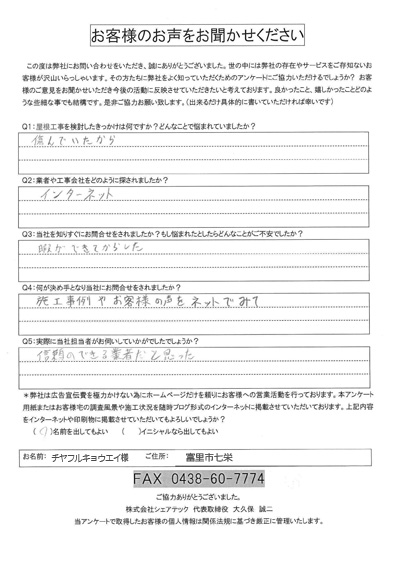 お客様のお声をお聞かせください
この度は弊社にお問い合わせをいただき、誠にありがとうございました。世の中には弊社の存在やサービスをご存知ないお
客様が沢山いらっしゃいます。その方たちに弊社をよく知っていただくためのアンケートにご協力いただけるでしょうか? お客
様のご意見をお聞かせいただき今後の活動に反映させていただきたいと考えております。良かったこと、嬉しかったことどのよ
うな些細な事でも結構です。是非ご協力お願い致します。（出来るだけ具体的に書いていただければ幸いです）
Q1：屋根工事を検討したきっかけは何ですか?どんなことで悩まれていましたか?
傷んでいたから
Q2：業者や工事会社をどのように探されましたか?
インターネット
Q3：当社を知りすぐにお問合せをされましたか?もし悩まれたとしたらどんなことがご不安でしたか?
暇ができてからした
Q4：何が決め手となり当社にお問合せをされましたか?
施工事例やお客様の声をネットでみて
Q5：実際に当社担当者がお伺いしていかがでしたでしょうか?
信頼のできる業者だと思った
＊弊社は広告宣伝費を極力かけない為にホームページだけを頼りにお客様への営業活動を行っております。本アンケート
用紙またはお客様宅の調査風景や施工状況を随時ブログ形式のインターネットに掲載させていただいております。上記内容
をインターネットや印刷物に掲載させていただいてもよろしいでしょうか?
( )名前を出してもよい ( )イニシャルなら出してもよい
お名前： チヤフルキョウエイ様 ご住所： 富里市七栄
FAX 0438-60-7774
ご協力ありがとうございました。
株式会社シェアテック 代表取締役 大久保 誠二
当アンケートで取得したお客様の個人情報は関係法規に基づき厳正に管理いたします。